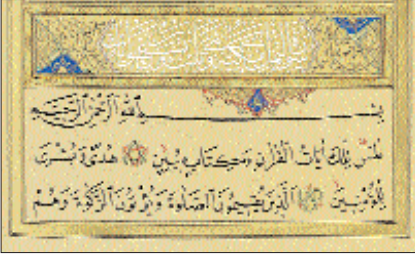 بِسْمِ ٱللَّهِ ٱلرَّحْمَٰنِ ٱلرَّحِيمِ
طسٓ تِلْكَ اٰيَاتُ الْقُرْاٰنِ وَكِتَابٍ مُبِينٍ هُدًى وَبُشْرٰى
لِلْمُؤْمِنِينَ اَلَّذِينَ يُقِيمُونَ الصَّلٰوةَ وَيُؤْتُونَ الزَّكٰوةَ وَهُمْ